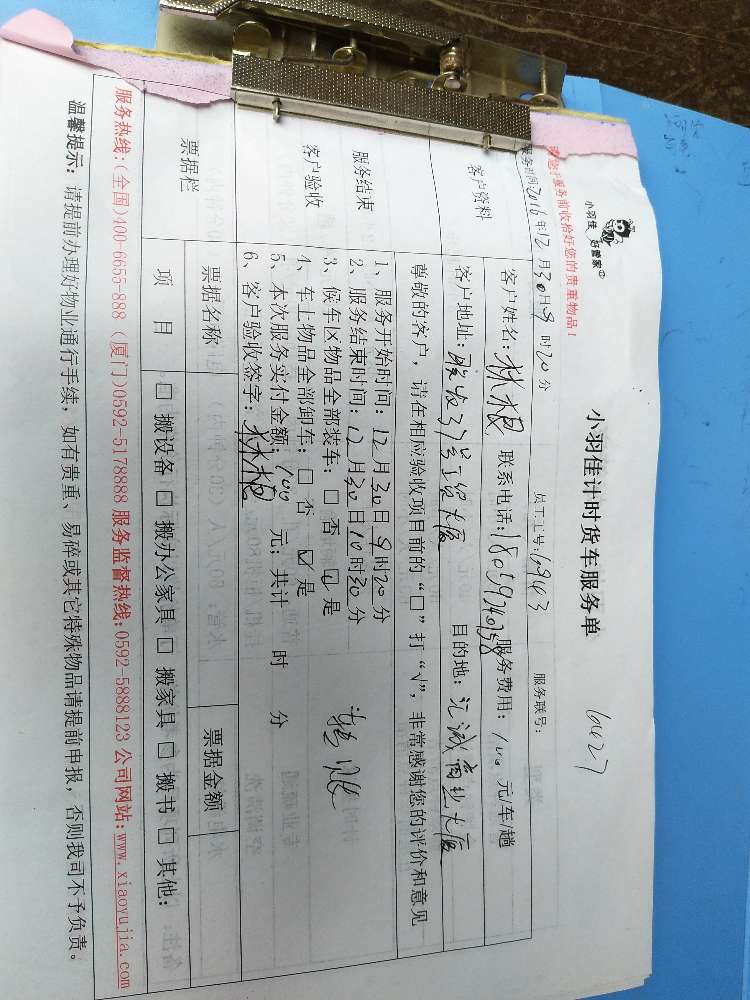 小羽佳 好管家
小羽佳计时货车服务单
6427
请您于服务前收拾好您的贵重物品!
服务时间2016年12月30日9时20分 员工工号:6943 服务联号:
客户资料
客户姓名:林根 联系电话:18059240358 服务费用:100元/车/趟
客户地址: 37号 大厦 目的地:汇诚商业大厦
尊敬的客户,请在相应验收项目前的“□”打“√”,非常感谢您的评价和意见
服务结束
客户验收
1、服务开始时间:12月30日9时20分
2、服务结束时间:12月30日10时30分
3、候车区物品全部装车:□ 否 ☑ 是
4、车上物品全部卸车:□ 否 ☑ 是
5、本次服务实付金额:100 元;共计 时 分
6、客户验收签字:林根
票据栏
票据名称 票据金额
项 目 □ 搬设备 □ 搬办公家具 □ 搬家具 □ 搬书 □ 其他:
服务热线:(全国)400-6655-888 (厦门)0592-5178888 服务监督热线:0592-5888123 公司网站:www.xiaoyujia.com
温馨提示:请提前办理好物业通行手续,如有贵重、易碎或其它特殊物品请提前申报,否则我司不予负责。